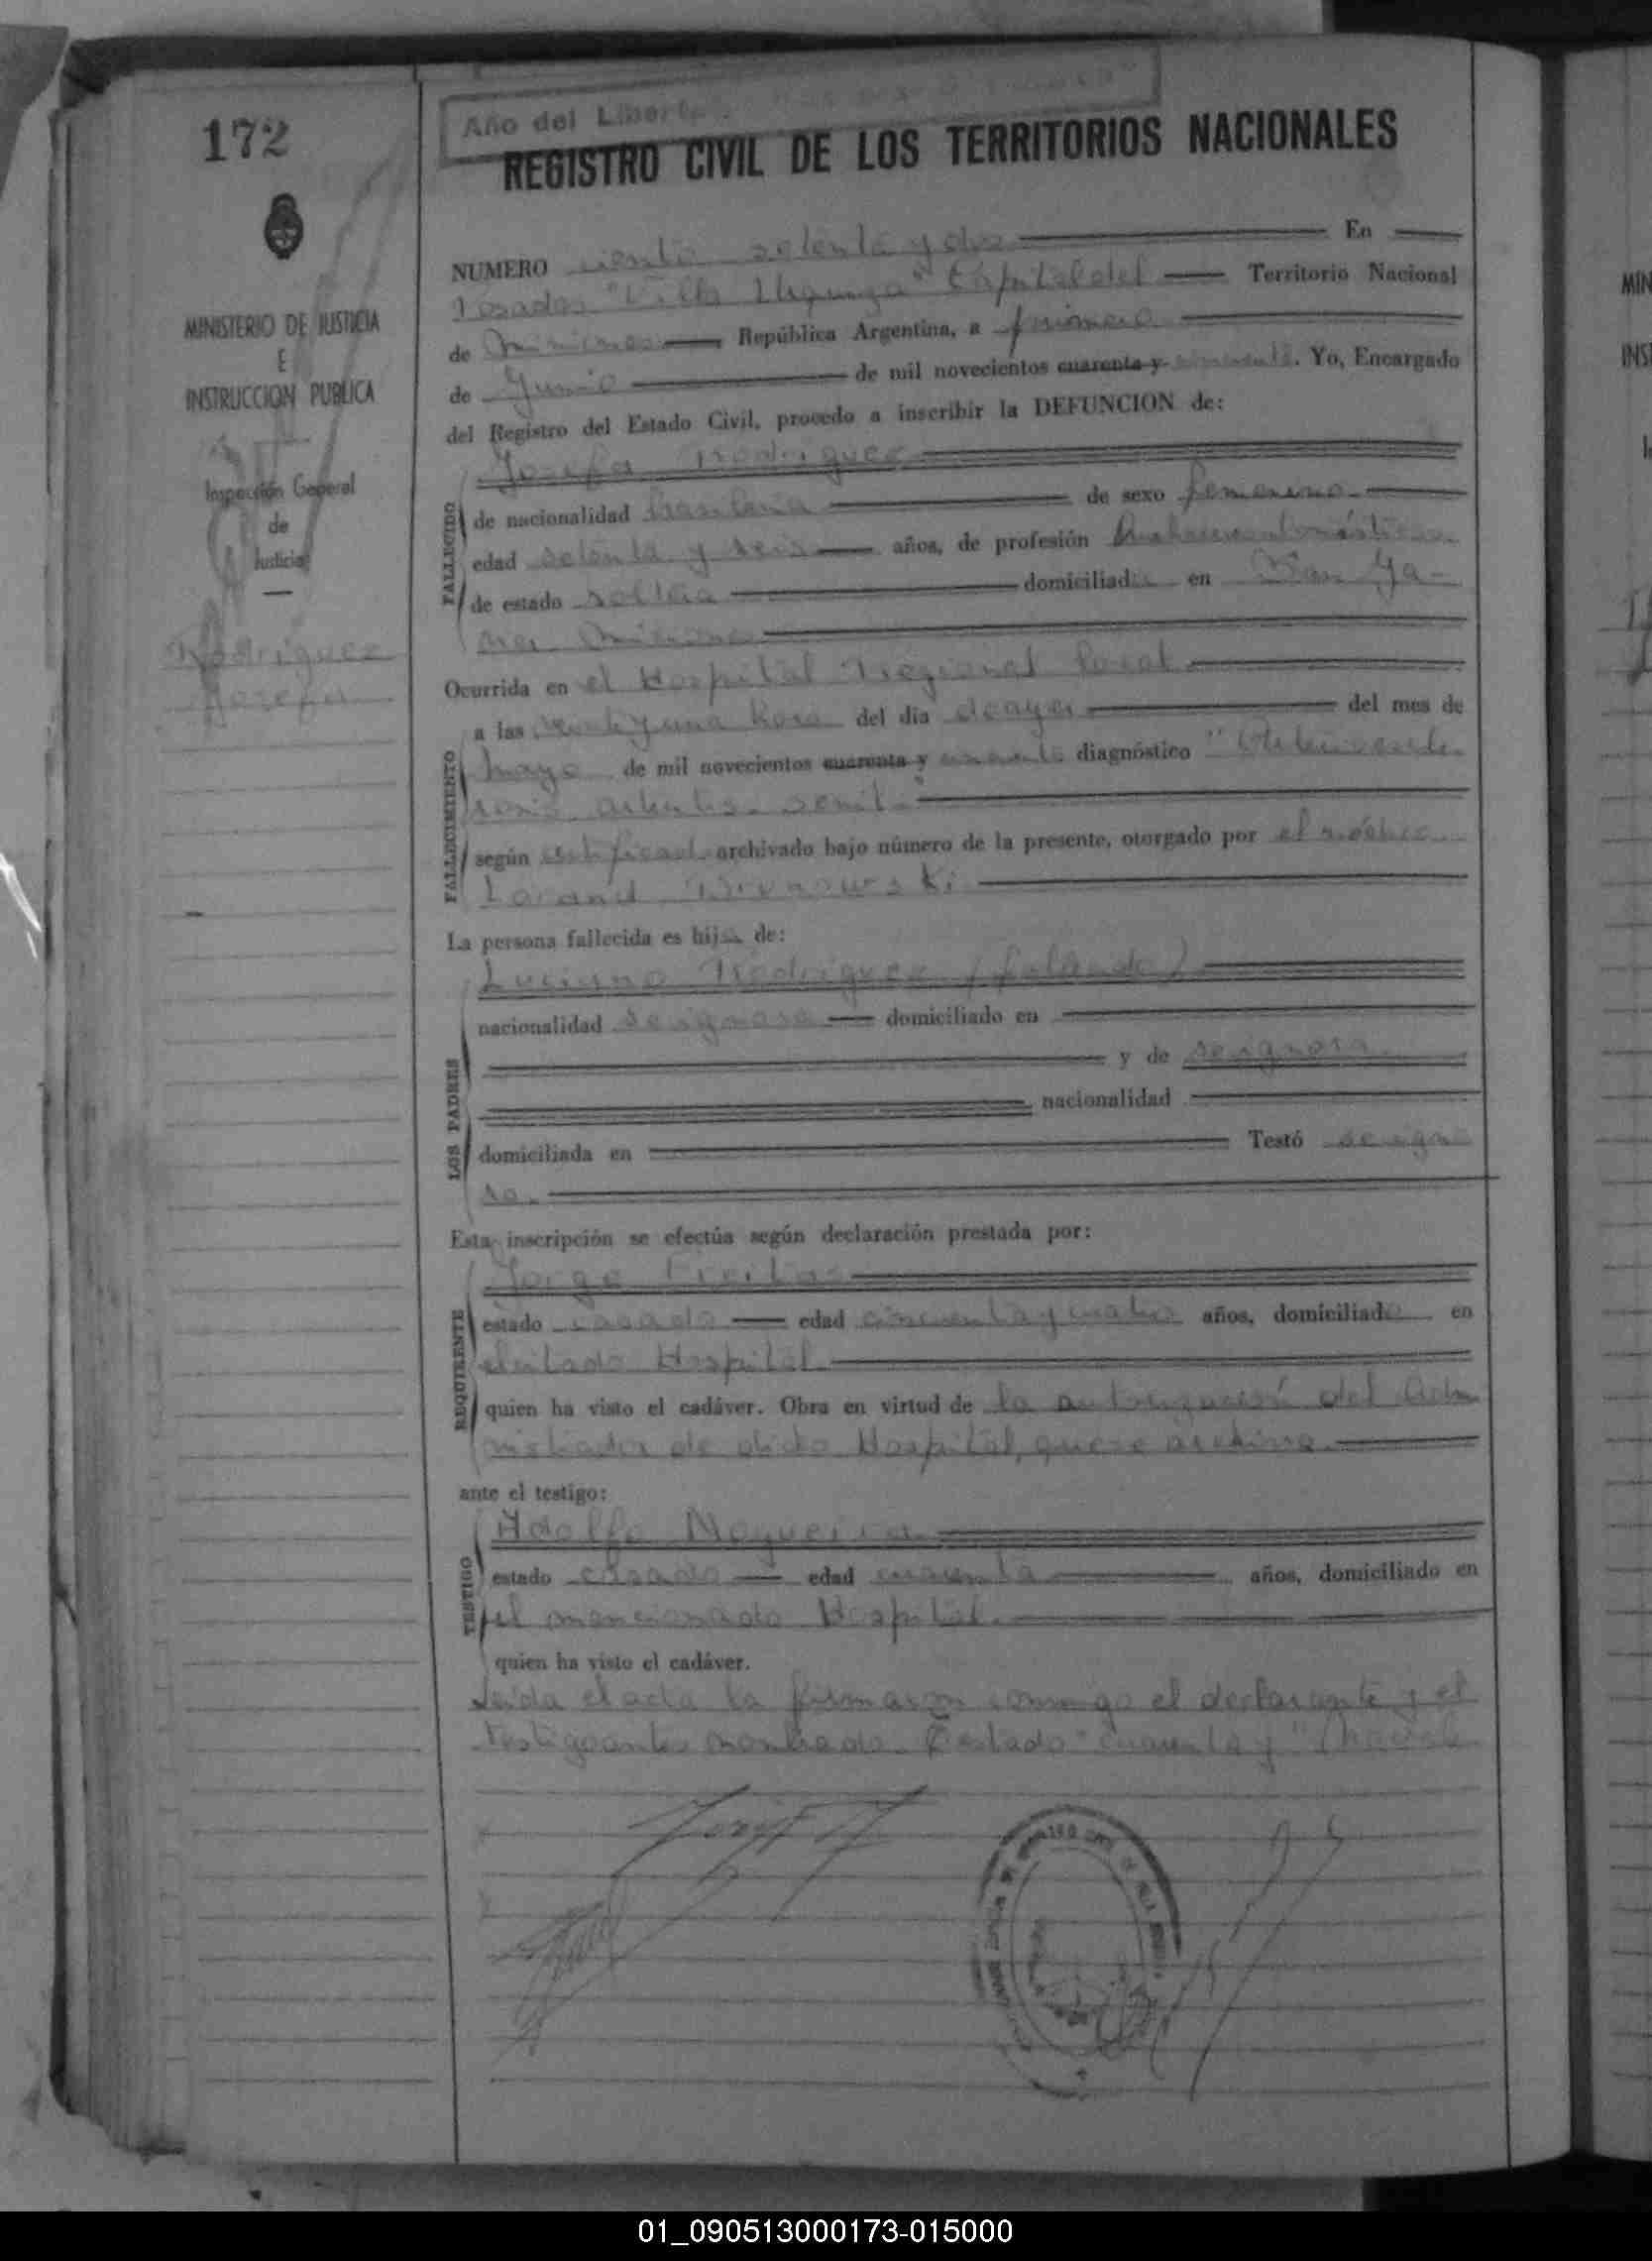 172
Año del Liberta
REGISTRO CIVIL DE LOS TERRITORIOS NACIONALES
MINISTERIO DE JUSTICIA
E
INSTRUCCION PUBLICA
Inspección General
de
Justicia
Rodriguez
Josefa
NUMERO ciento setenta y dos En
Posadas "Villa Urquiza" Capital del Territorio Nacional
de Misiones República Argentina, a primero
de Junio de mil novecientos cuarenta y cincuenta. Yo, Encargado
del Registro del Estado Civil, procedo a inscribir la DEFUNCION de:
FALLECIDO
Josefa Rodriguez
de nacionalidad brasileña de sexo femenino
edad setenta y seis años, de profesión
de estado soltera domiciliada en San Ja-
Misiones
FALLECIMIENTO
Ocurrida en el Hospital Regional local
a las veinte y una hora del día de ayer del mes de
mayo de mil novecientos cuarenta y cincuenta diagnóstico
senil."
según certificado archivado bajo número de la presente, otorgado por el médico
La persona fallecida es hija de:
LOS PADRES
Luciano Rodriguez (finado)
nacionalidad se ignora domiciliado en
y de se ignora
nacionalidad
domiciliada en Testó se igno
ra.
Esta inscripción se efectúa según declaración prestada por:
REQUIRENTE
Jorge Freitas
estado casado edad cincuenta y cuatro años, domiciliado en
el citado Hospital
quien ha visto el cadáver. Obra en virtud de la autorización del Admi
nistrador de dicho Hospital, que se archiva.
ante el testigo:
TESTIGO
Adolfo Nogueira
estado casado edad cuarenta años, domiciliado en
el mencionado Hospital.
quien ha visto el cadáver.
Leída el acta la firmaron conmigo el declarante y el
testigo antes nombrado. Testado "cuarenta y"
01_090513000173-015000